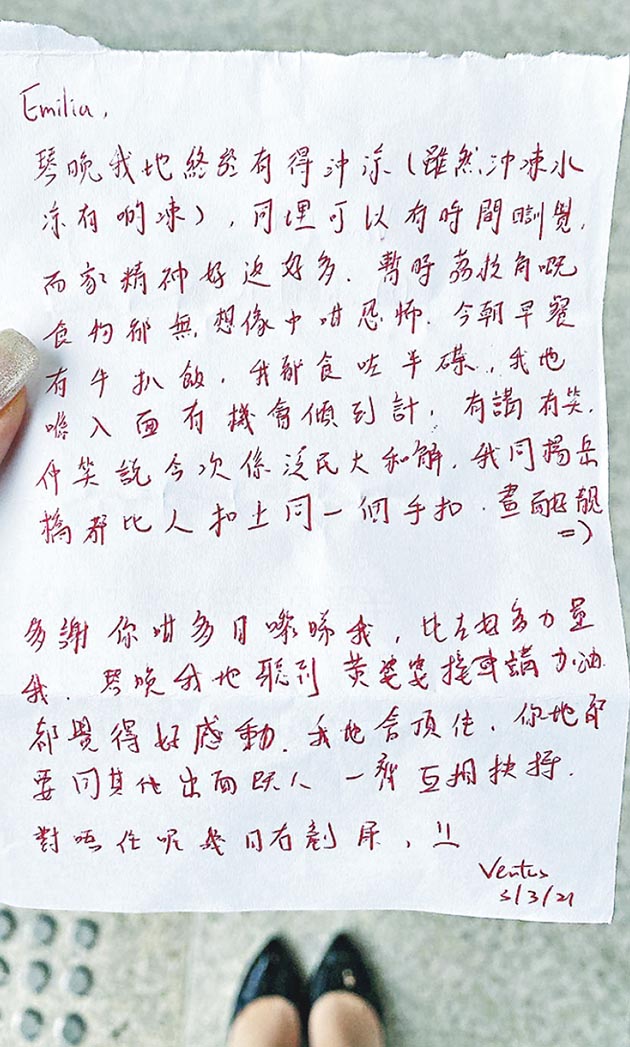 Emilia,
琴晚我地終於有得沖涼（雖然沖凍水
涼有啲凍），同埋可以有時間瞓覺，
而家精神好返好多．暫時荔枝角嘅
食物都無想像中咁恐怖．今朝早餐
有牛扒飯，我都食咗半碟．我地
喺入面有機會傾到計，有講有笑，
仲笑說今次係泛民大和解．我同楊岳
橋都比人扣上同一個手扣．畫靚
=)
多謝你咁多日嚟睇我，比左好多力量
我．琴晚我地聽到黃婆婆接車講加油
都覺得好感動．我地會頂住，你地都
要同其他出面既人一齊互相扶持．
對唔住呢幾日冇剃鬍，=)
Ventus
5/3/21